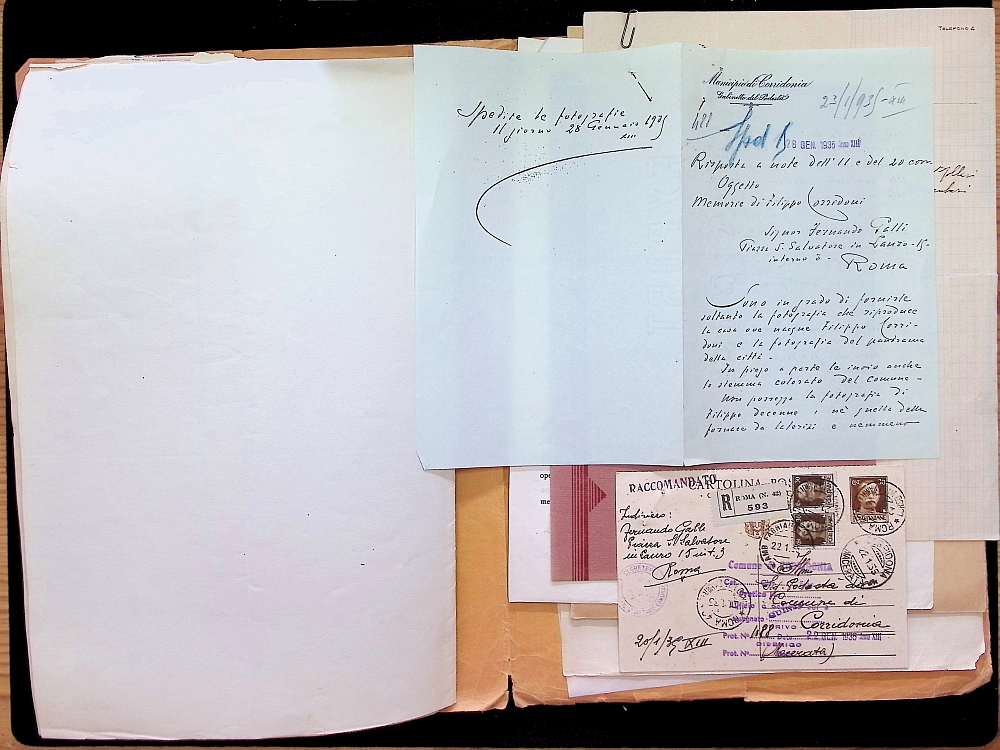 TELEFONO 2
Spedite le fotografie
Il giorno 28 Gennaio 1935
XIII
Municipio di Corridonia
Gabinetto del Podestà
23/1/935-XIII
488
Sped
28 GEN. 1935 Anno XIII
Risposta a note dell'11 e del 20 corr.
Oggetto
Memorie di Filippo Corridoni
Signor Fernando Galli
Piazza S. Salvatore in Lauro-15-
interno 3 -
Roma
Sono in grado di fornirle
soltanto la fotografia che riproduce
la casa ove nacque Filippo Corri-
doni e la fotografia del panorama
della città -
In piego a parte le invio anche
lo stemma colorato del Comune -
Non posseggo la fotografia di
Filippo decenne, nè quella della
fornace da laterizi e nemmeno
ope
me
RACCOMANDATO
CARTOLINA POS
R ROMA (N. 42)
593
Indirizzo:
Fernando Galli
Piazza S. Salvatore
in Lauro 15 int. 3
Roma
Comune di CORRIDONIA
Sig. Podestà di
Comune di
Corridonia
(Macerata)
ARRIVO
Prot. N° 488 Data 22 GEN. 1935 Anno XIII
Prot. N°
20/1/35 XIII